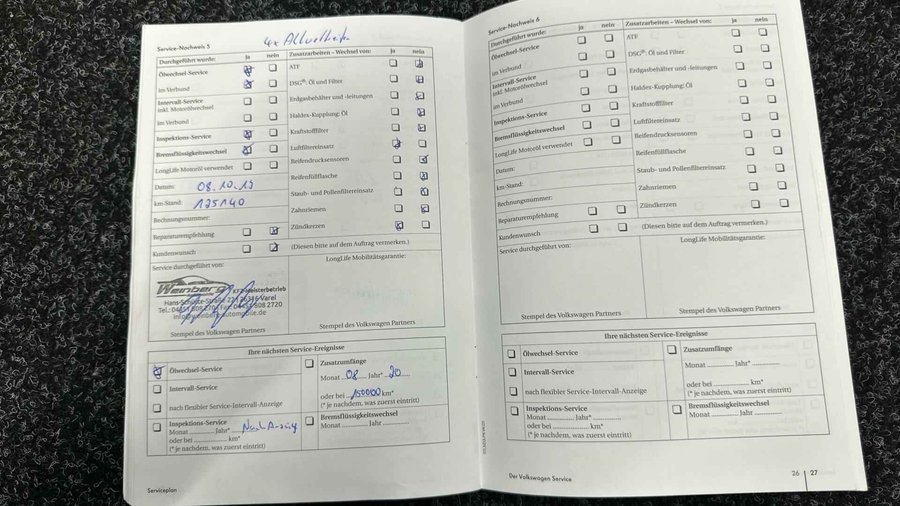 Service-Nachweis 5
4x Allwetter
Durchgeführt wurde: ja nein
Ölwechsel-Service
im Verbund
Intervall-Service
inkl. Motorölwechsel
im Verbund
Inspektions-Service
Bremsflüssigkeitswechsel
LongLife Motoröl verwendet
Datum: 08.10.19
km-Stand: 135140
Rechnungsnummer:
Reparaturempfehlung
Kundenwunsch
Zusatzarbeiten – Wechsel von: ja nein
ATF
DSG®: Öl und Filter
Erdgasbehälter und -leitungen
Haldex-Kupplung: Öl
Kraftstofffilter
Luftfiltereinsatz
Reifendrucksensoren
Reifenfüllflasche
Staub- und Pollenfiltereinsatz
Zahnriemen
Zündkerzen
(Diesen bitte auf dem Auftrag vermerken.)
Service durchgeführt von:
Weinberg
KFZ-Meisterbetrieb
26316 Varel
Stempel des Volkswagen Partners
LongLife Mobilitätsgarantie:
Stempel des Volkswagen Partners
Ihre nächsten Service-Ereignisse
Ölwechsel-Service
Intervall-Service
nach flexibler Service-Intervall-Anzeige
Inspektions-Service
Monat ........ Jahr* Nach Anzeige
oder bei ............ km*
(* je nachdem, was zuerst eintritt)
Zusatzumfänge
Monat 08 Jahr* 20
oder bei 150000 km*
(* je nachdem, was zuerst eintritt)
Bremsflüssigkeitswechsel
Monat ........ Jahr ........
Serviceplan
Service-Nachweis 6
Durchgeführt wurde: ja nein
Ölwechsel-Service
im Verbund
Intervall-Service
inkl. Motorölwechsel
im Verbund
Inspektions-Service
Bremsflüssigkeitswechsel
LongLife Motoröl verwendet
Datum:
km-Stand:
Rechnungsnummer:
Reparaturempfehlung
Kundenwunsch
Zusatzarbeiten – Wechsel von: ja nein
ATF
DSG®: Öl und Filter
Erdgasbehälter und -leitungen
Haldex-Kupplung: Öl
Kraftstofffilter
Luftfiltereinsatz
Reifendrucksensoren
Reifenfüllflasche
Staub- und Pollenfiltereinsatz
Zahnriemen
Zündkerzen
(Diesen bitte auf dem Auftrag vermerken.)
Service durchgeführt von:
Stempel des Volkswagen Partners
LongLife Mobilitätsgarantie:
Stempel des Volkswagen Partners
Ihre nächsten Service-Ereignisse
Ölwechsel-Service
Intervall-Service
nach flexibler Service-Intervall-Anzeige
Inspektions-Service
Monat ........ Jahr* ........
oder bei ............ km*
(* je nachdem, was zuerst eintritt)
Zusatzumfänge
Monat ........ Jahr* ........
oder bei ............ km*
(* je nachdem, was zuerst eintritt)
Bremsflüssigkeitswechsel
Monat ........ Jahr ........
Der Volkswagen Service
26 | 27